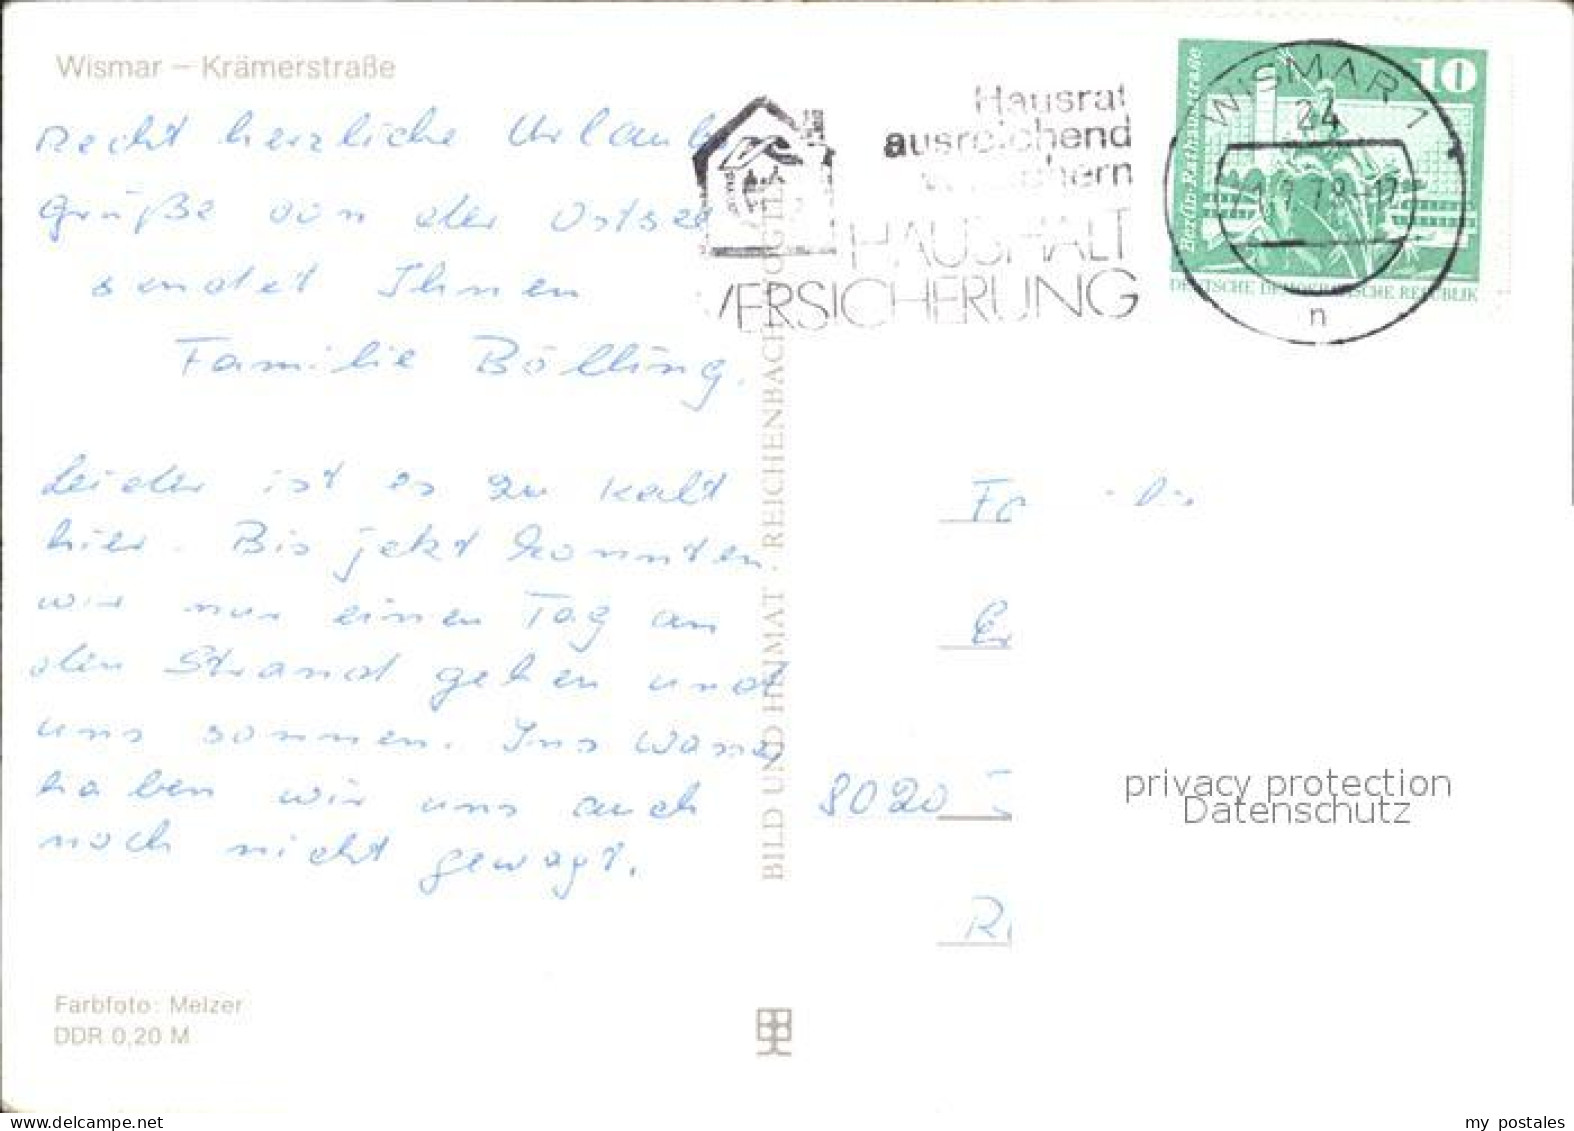 Wismar – Krämerstraße
Recht herzliche Urlaubs
grüße von der Ostsee
sendet Ihnen
Familie Bölling.
Leider ist es zu kalt
hier. Bis jetzt konnten
wir nur einen Tag an
den Strand gehen und
uns sonnen. Ins Wasser
haben wir uns auch
noch nicht gewagt.
Farbfoto: Melzer
DDR 0,20 M
BILD UND HEIMAT · REICHENBACH
Hausrat
ausreichend
HAUSHALT
VERSICHERUNG
WISMAR 1
24
n
10
Berlin-Rathausstraße
DEUTSCHE DEMOKRATISCHE REPUBLIK
8020
privacy protection
Datenschutz
my postales